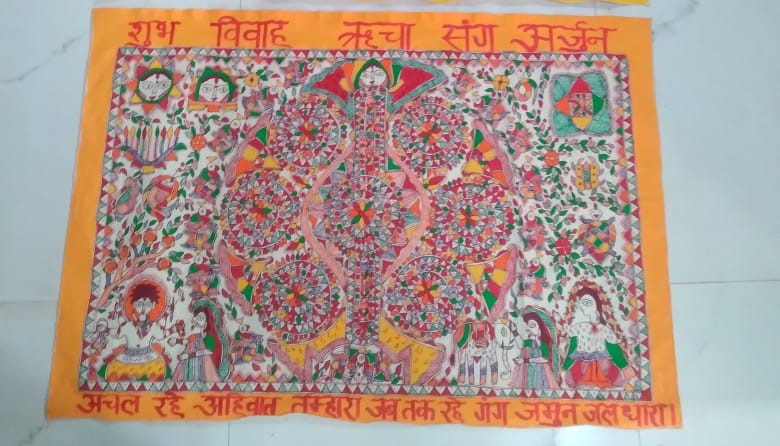 शुभ विवाह ऋचा संग अर्जुन
अचल रहे अहिवात तम्हारा जब तक रहे गंग जमुन जल धारा।